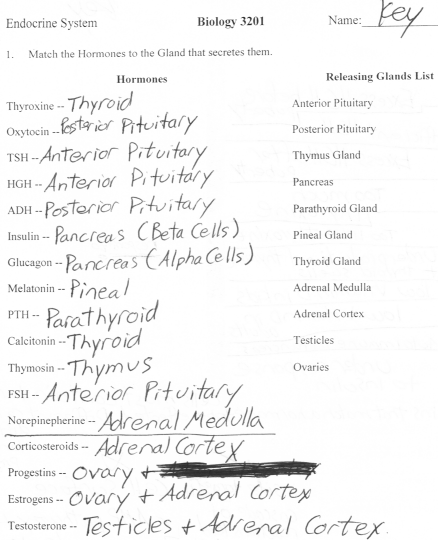 Endocrine System Biology 3201 Name: Key
1. Match the Hormones to the Gland that secretes them.
Hormones Releasing Glands List
Thyroxine -- Thyroid Anterior Pituitary
Oxytocin -- Posterior Pituitary Posterior Pituitary
TSH -- Anterior Pituitary Thymus Gland
HGH -- Anterior Pituitary Pancreas
ADH -- Posterior Pituitary Parathyroid Gland
Insulin -- Pancreas (Beta Cells) Pineal Gland
Glucagon -- Pancreas (Alpha Cells) Thyroid Gland
Melatonin -- Pineal Adrenal Medulla
PTH -- Parathyroid Adrenal Cortex
Calcitonin -- Thyroid Testicles
Thymosin -- Thymus Ovaries
FSH -- Anterior Pituitary
Norepinepherine -- Adrenal Medulla
Corticosteroids -- Adrenal Cortex
Progestins -- Ovary +
Estrogens -- Ovary + Adrenal Cortex
Testosterone -- Testicles + Adrenal Cortex.